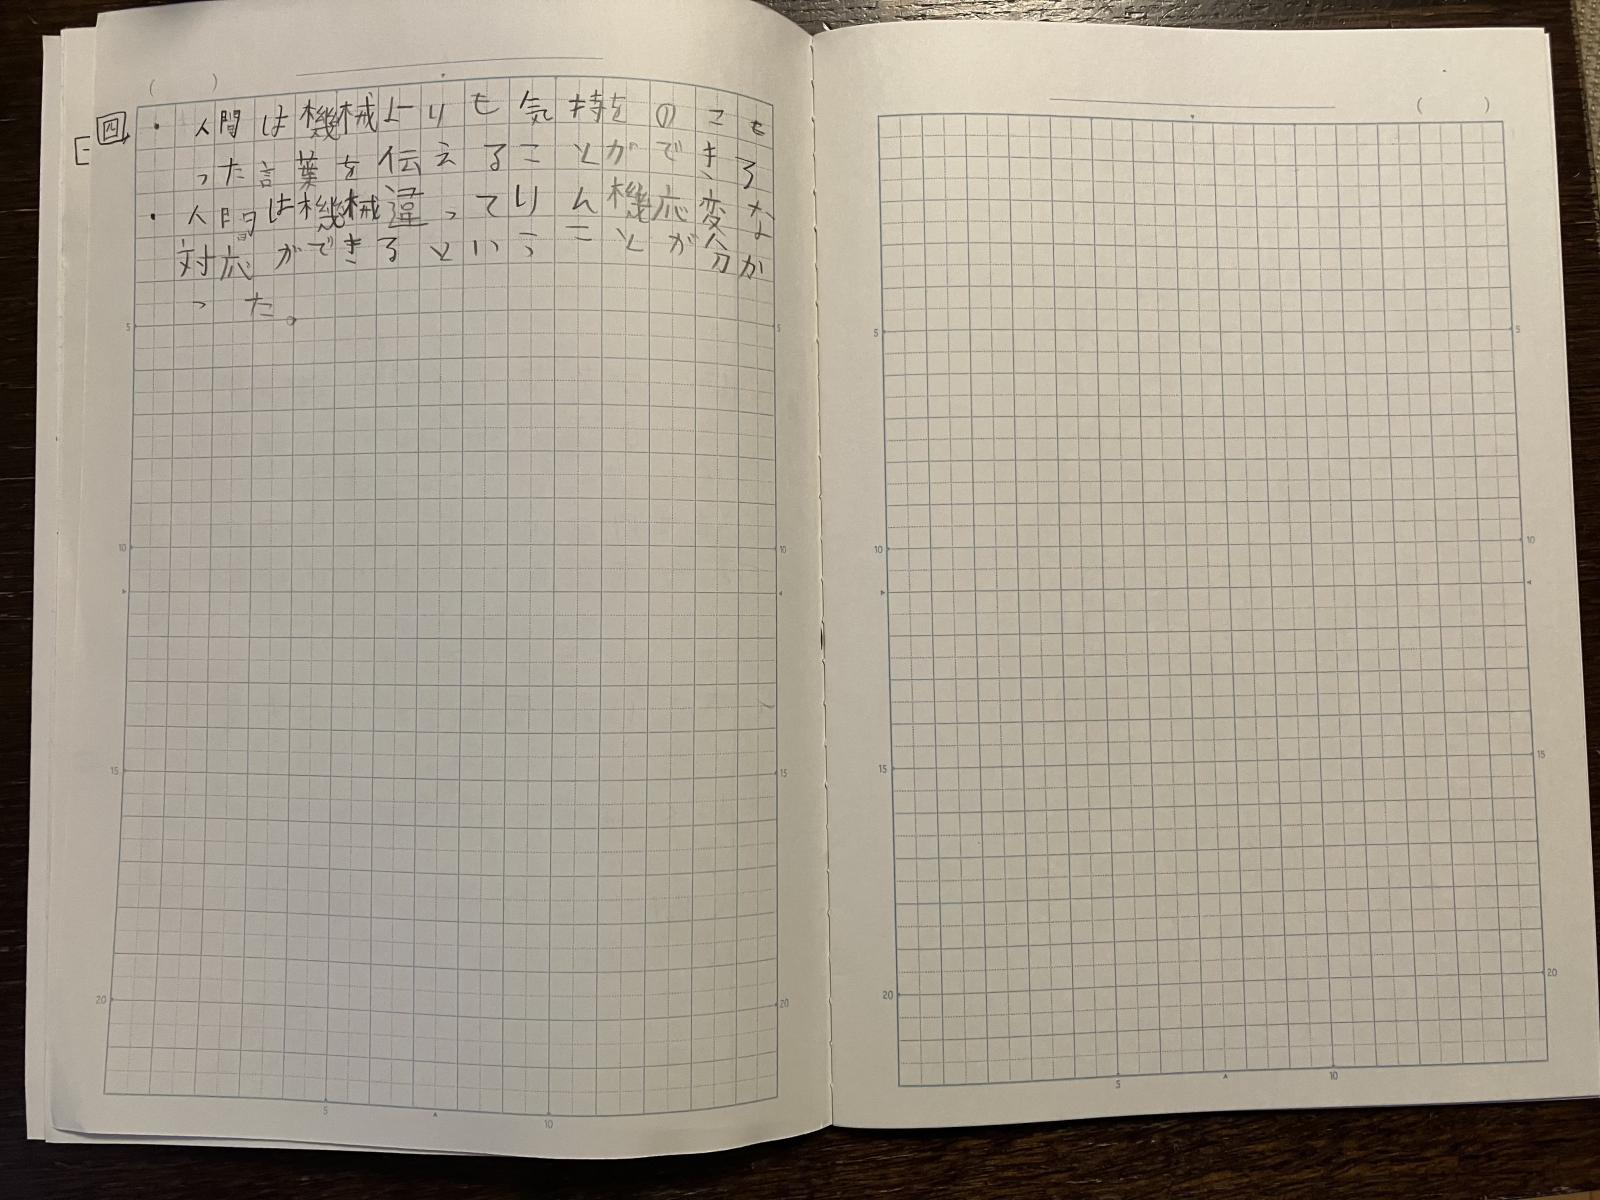 四 ・人間は機械よりも気持をのこも
った言葉を伝えることができる
・人間は機械違ってりん機応変な
対応ができるということが分か
った。
5 5
10 10
15 15
20 20
5 10
5 5
10 10
15 15
20 20
5 10